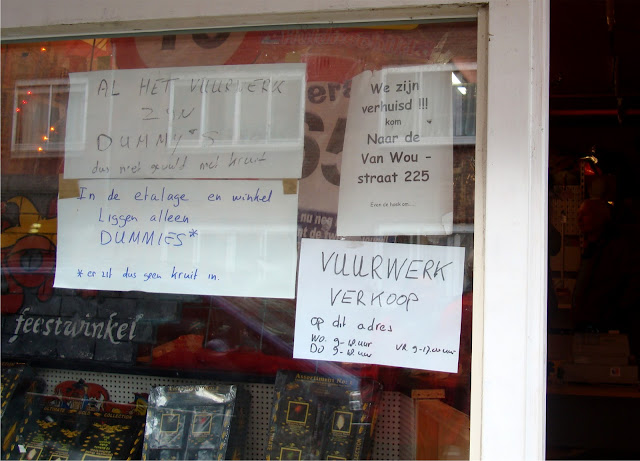 AL HET VUURWERK
ZIJN
DUMMY'S
dus niet gevuld met kruit
In de etalage en winkel
Liggen alleen
DUMMIES*
* er zit dus geen kruit in.
We zijn
verhuisd !!!
kom
Naar de
Van Wou -
straat 225
Even de hoek om.....
nu nog
VUURWERK
VERKOOP
op dit adres
WO. 9-18.uur
DO. 9-18.uur
VR 9-17.00 uur
feestwinkel